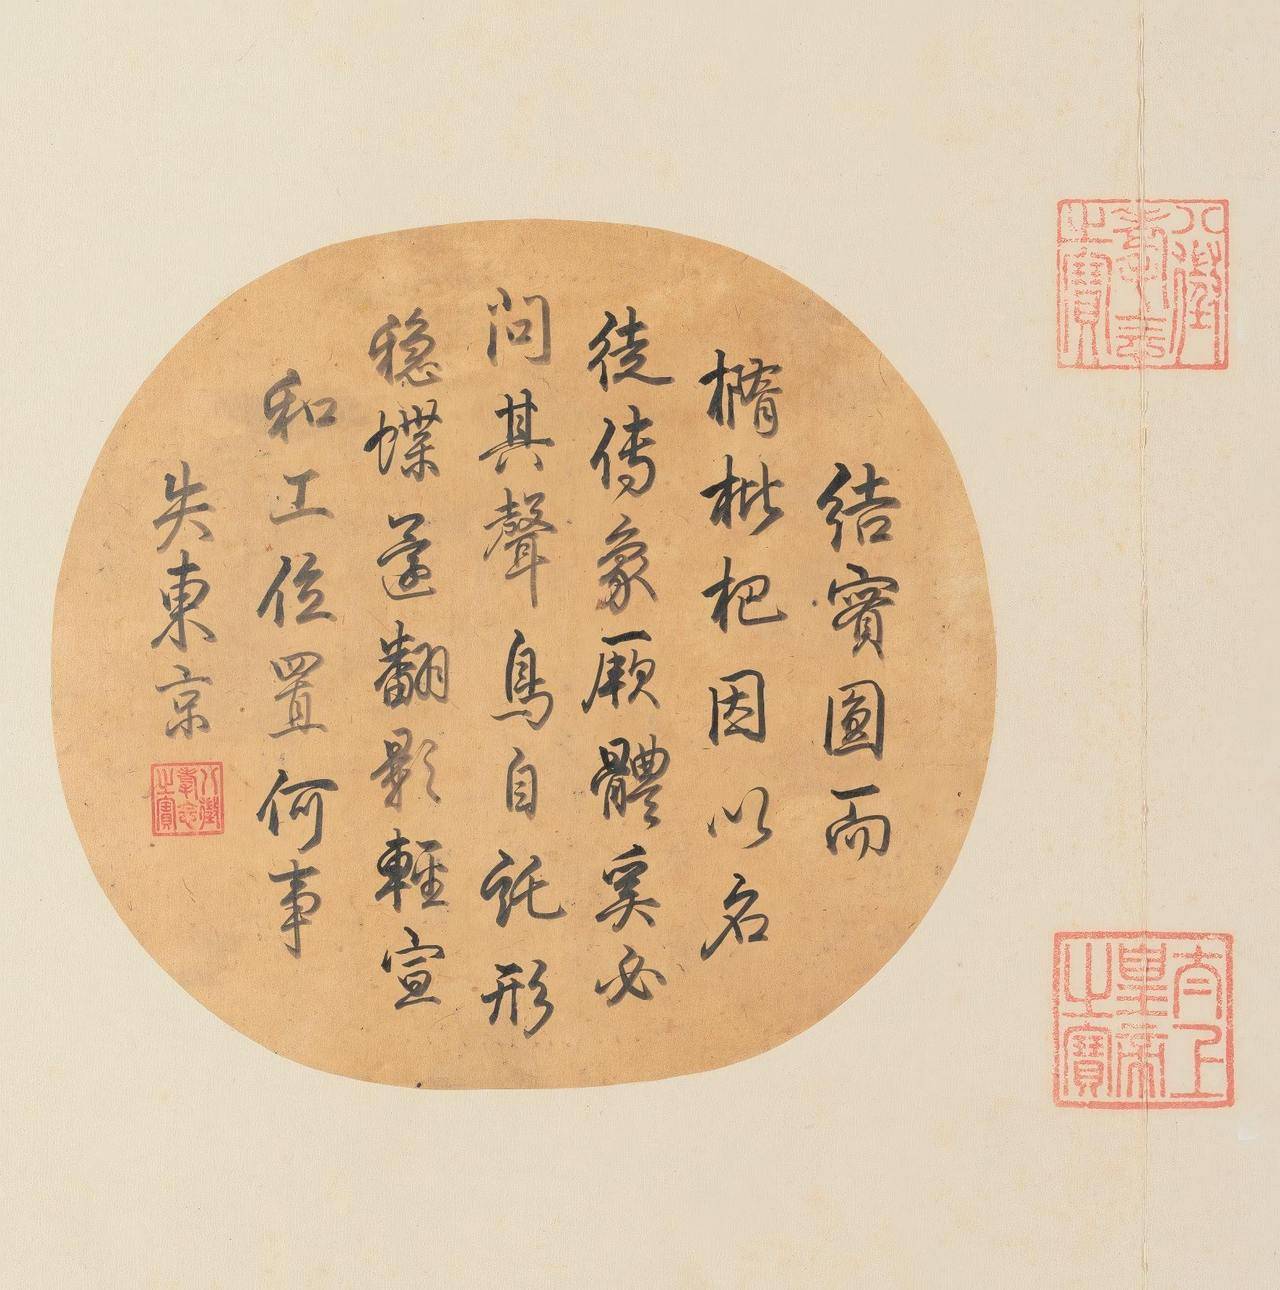 八徵耄念之寶
太上皇帝之寶
結實圓而
橢枇杷因以名
徒傳象厥體奚必
問其聲鳥自託形
穩蝶還翻影輕宣
和工位置何事
失東京
八徵耄念之寶